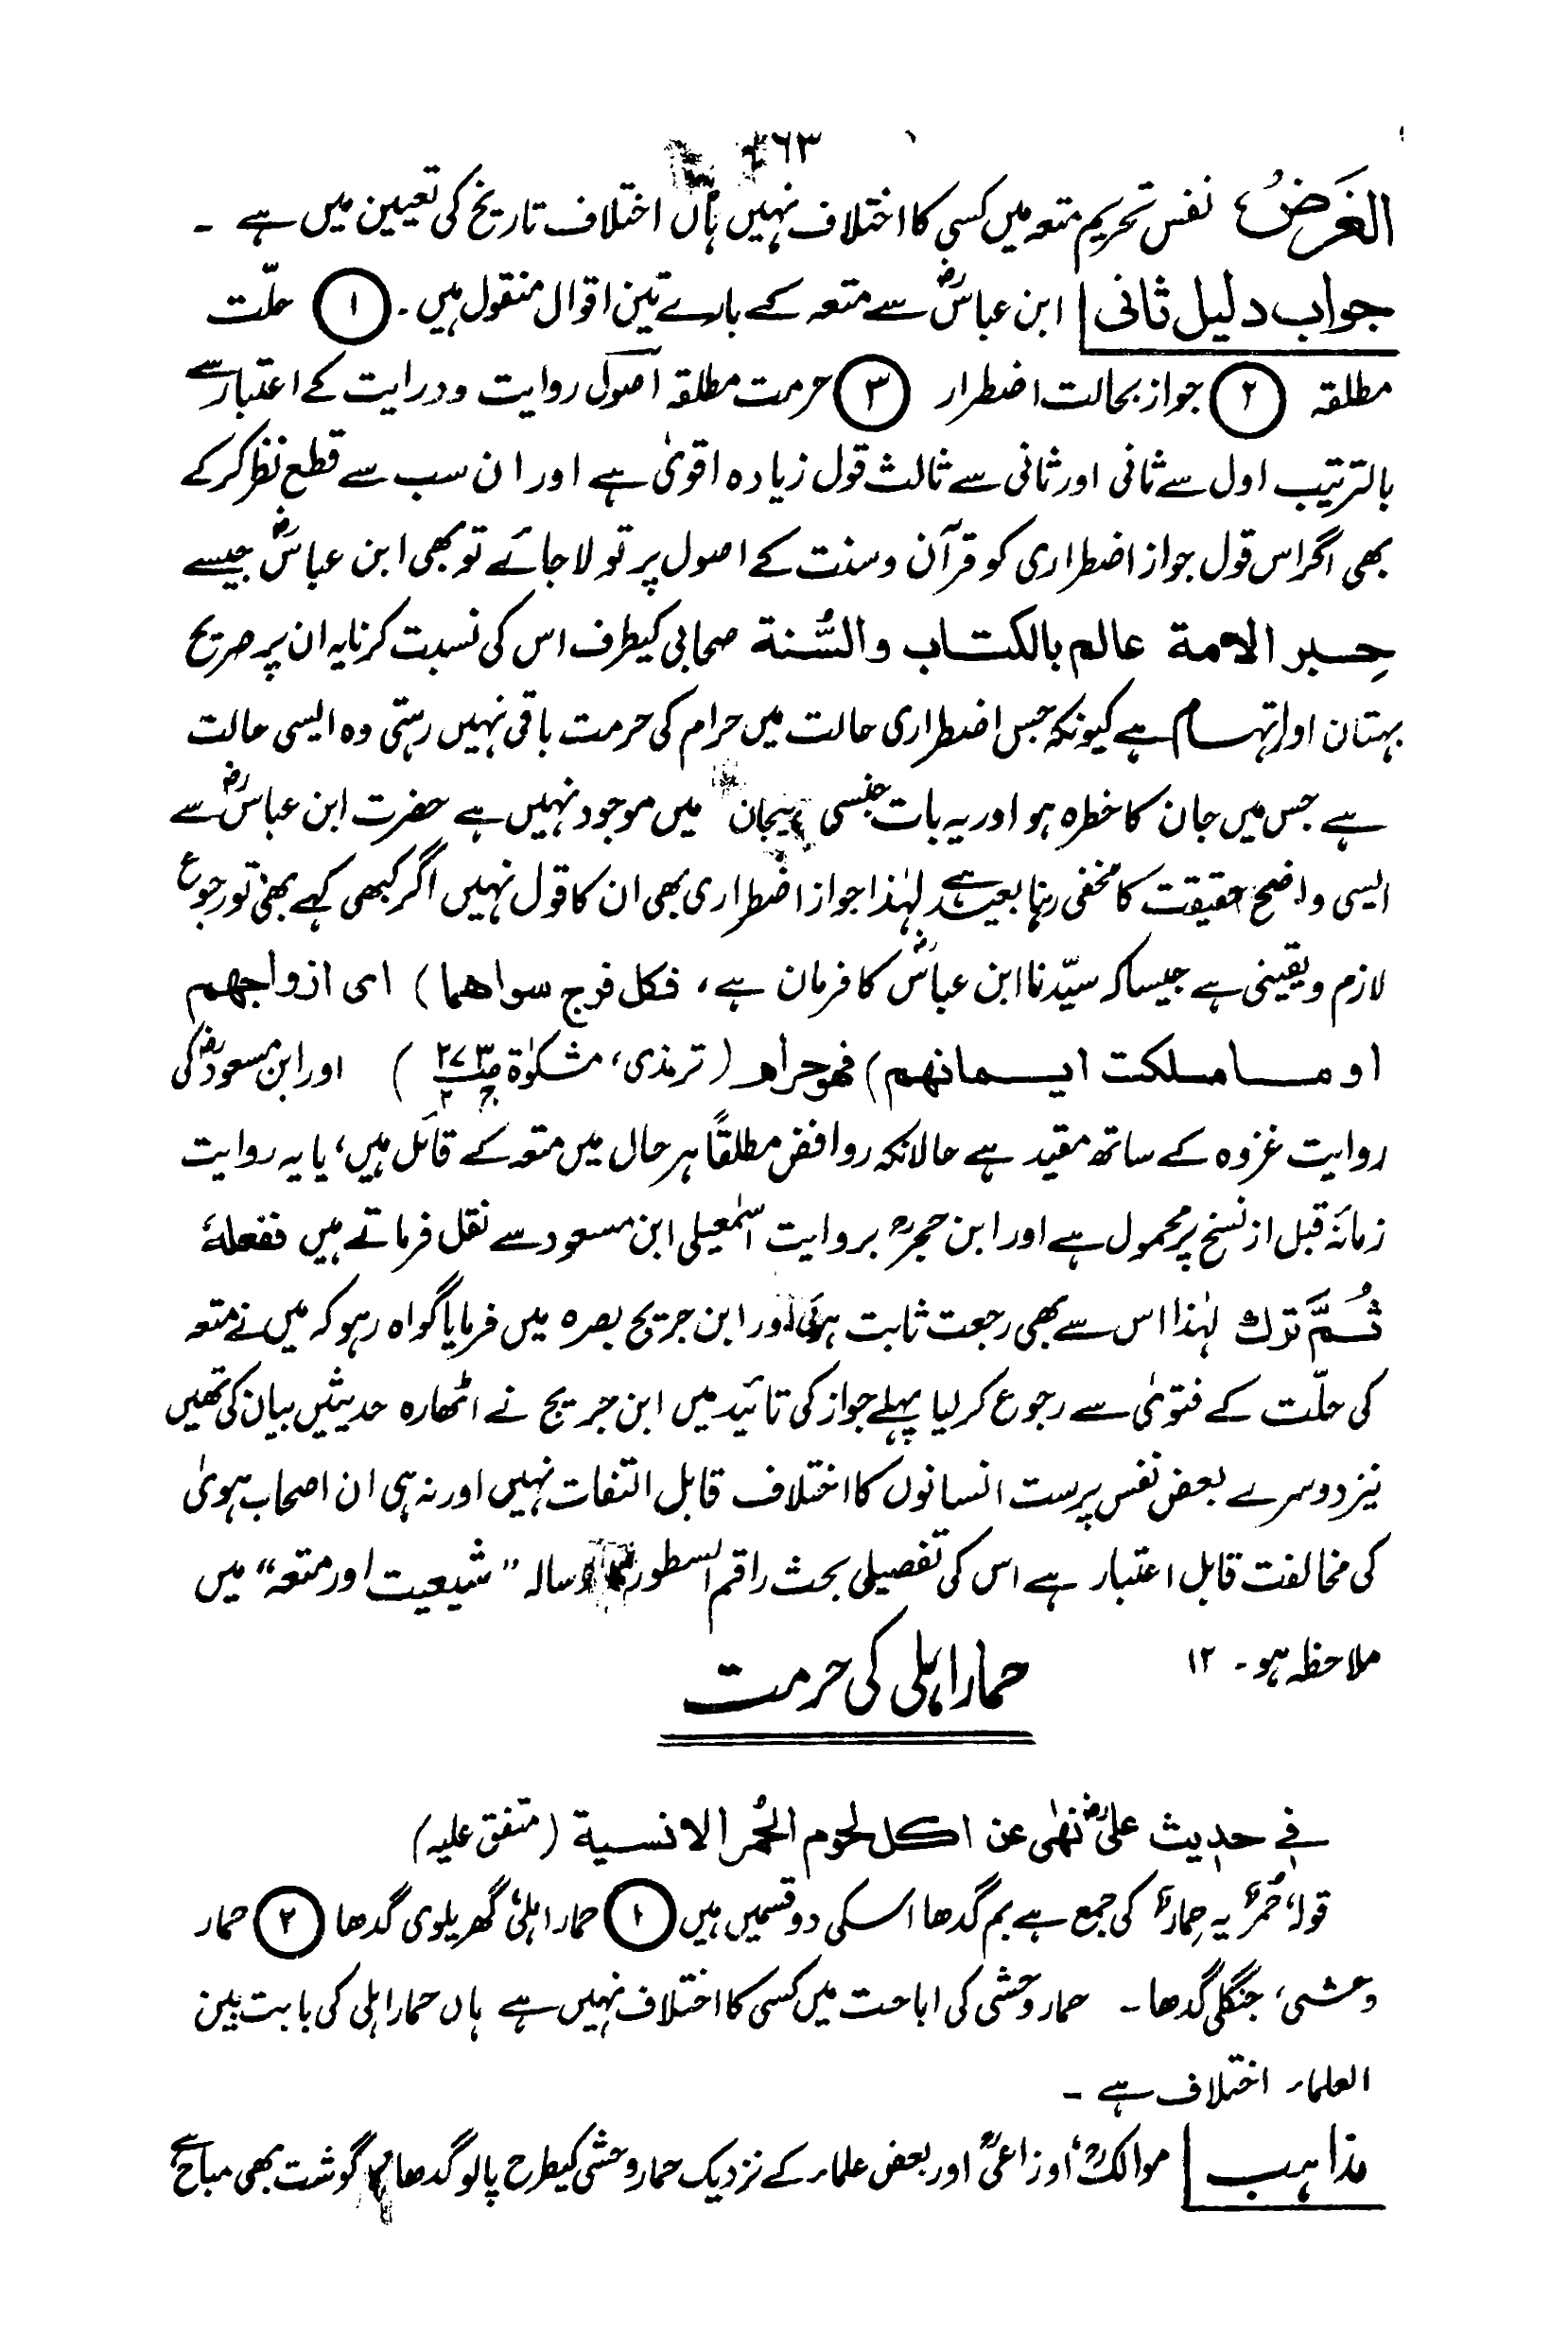 ۴۶۳
الغَرَضُ نفس تحریم متعہ میں کسی کا اختلاف نہیں ہاں اختلاف تاریخ کی تعیین میں ہے ۔
جواب دلیل ثانی | ابن عباسؓ سے متعہ کے بارے تین اقوال منقول ہیں ۔ ① حلّت
مطلقہ ② جواز بحالت اضطرار ③ حرمت مطلقہ اصول روایت و درایت کے اعتبار سے
بالترتیب اول سے ثانی اور ثانی سے ثالث قول زیادہ اقویٰ ہے اور ان سب سے قطع نظر کر کے
بھی اگر اس قول جواز اضطراری کو قرآن وسنت کے اصول پر تولا جائے تو بھی ابن عباسؓ جیسے
حِبر الامة عالم بالکتاب والسُّنة صحابی کیطرف اس کی نسبت کرنا یہ ان پر صریح
بہتان اور اتہام ہے کیونکہ جس اضطراری حالت میں حرام کی حرمت باقی نہیں رہتی وہ ایسی حالت
ہے جس میں جان کا خطرہ ہو اور یہ بات جنسی ہیجان میں موجود نہیں ہے حضرت ابن عباسؓ سے
ایسی واضح حقیقت کا مخفی رہنا بعید ہے لہٰذا جواز اضطراری بھی ان کا قول نہیں اگر کبھی کہے بھی تو رجوع
لازم و یقینی ہے جیسا کہ سیّدنا ابن عباسؓ کا فرمان ہے، فکل فرج سواھما) ای ازواجھم
او ما ملکت ایمانھم) فھو حرام (ترمذی، مشکوٰة ص۲۷۳ ج۲) اور ابن مسعودؓ کی
روایت غزوہ کے ساتھ مقید ہے حالانکہ روافض مطلقًا ہر حال میں متعہ کے قائل ہیں، یا یہ روایت
زمانۂ قبل از نسخ پر محمول ہے اور ابن حجرؒ بروایت اسمٰعیلی ابن مسعود سے نقل فرماتے ہیں ففعلهٗ
ثُمَّ ترك لہٰذا اس سے بھی رجعت ثابت ہوئی اور ابن جریج بصرہ میں فرمایا گواہ رہو کہ میں نے متعہ
کی حلّت کے فتویٰ سے رجوع کر لیا پہلے جواز کی تائید میں ابن جریج نے اٹھارہ حدیثیں بیان کی تھیں
نیز دوسرے بعض نفس پرست انسانوں کا اختلاف قابل التفات نہیں اور نہ ہی ان اصحاب ہویٰ
کی مخالفت قابل اعتبار ہے اس کی تفصیلی بحث راقم السطور رسالہ "شیعیت اور متعہ" میں
ملاحظہ ہو ۔ ۱۲
حمار اہلی کی حرمت
فے حدیث علیؓ نھٰی عن اکل لحوم الحُمر الانسیة (متفق علیہ)
قولہٗ حُمُرٌ یہ حِمارٌ کی جمع ہے بم گدھا اسکی دو قسمیں ہیں ① حمار اہلی، گھریلوی گدھا ② حمار
وحشی، جنگلی گدھا ۔ حمار وحشی کی اباحت میں کسی کا اختلاف نہیں ہے ہاں حمار اہلی کی بابت بین
العلماء اختلاف ہے ۔
مذاہب | موالکؒ، اوزاعیؒ اور بعض علماء کے نزدیک حمار وحشی کیطرح پالو گدھا گوشت بھی مباح ہے